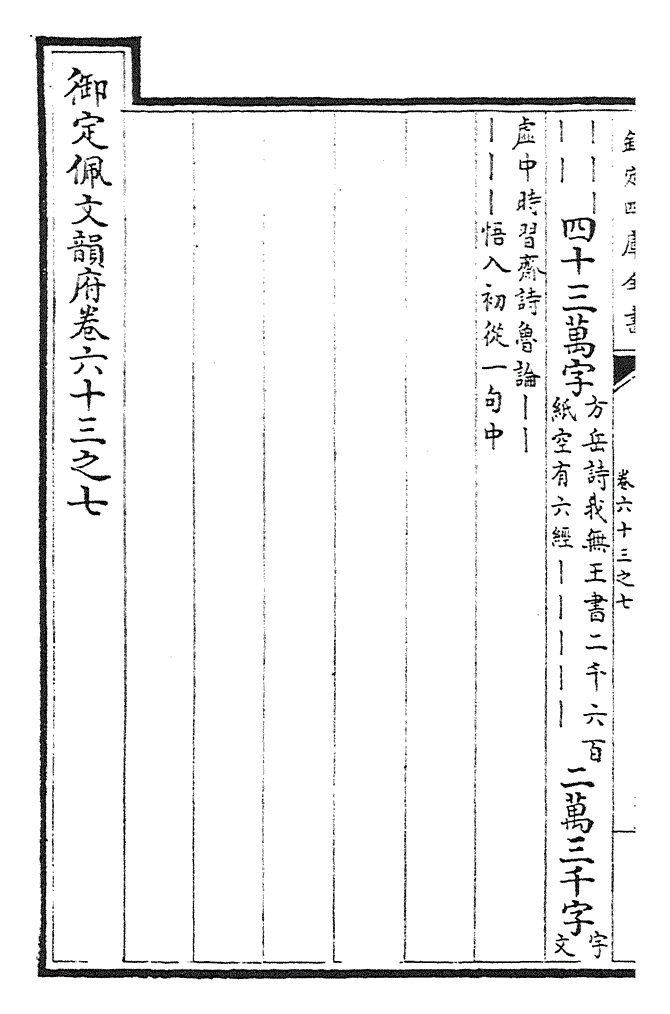 欽定四庫全書
卷六十三之七
｜｜｜
｜｜
四十三萬字
方岳詩我無王書二千六百
紙空有六經｜｜｜｜｜
二萬三千字
宇
文
虛中時習齋詩魯論｜｜
｜｜｜悟入初從一句中
御定佩文韻府卷六十三之七